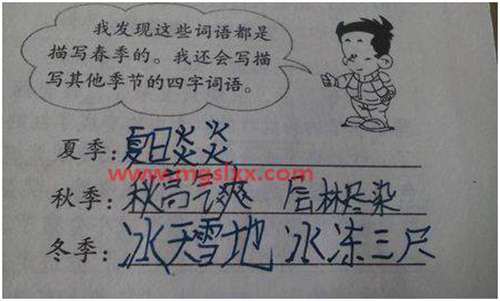 我发现这些词语都是
描写春季的。我还会写描
写其他季节的四字词语。
夏季:夏日炎炎
www.mgslxx.com
秋季:秋高气爽 层林尽染
冬季:冰天雪地 冰冻三尺